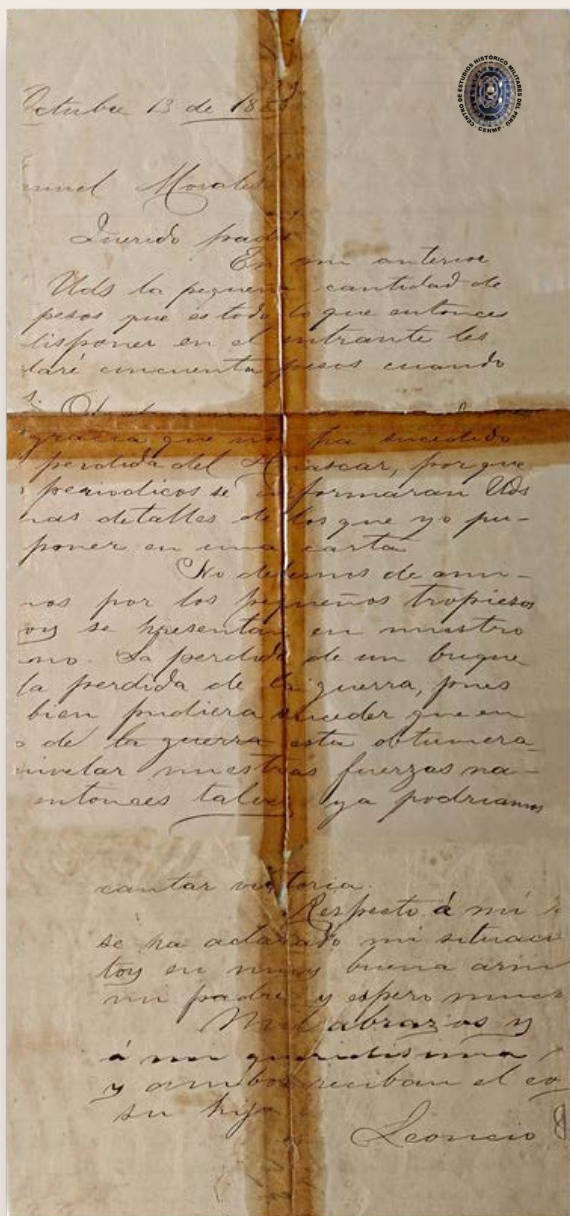 CENTRO DE ESTUDIOS HISTÓRICO MILITARES DEL PERÚ
CEHMP
Octubre 13 de 18
Morales
Querido padre
En mi anterior
Uds la pequeña cantidad de
pesos que es todo lo que entonces
disponer en el entrante les
daré cincuenta pesos cuando
gracia que nos ha sucedido
perdida del Huascar, por que
periodicos se informaran Uds
mas detalles de los que yo pu-
poner en una carta
No debemos de
nos por los pequeños tropiesos
se presentan en nuestro
no. La perdida de un buque
la perdida de la guerra, pues
bien pudiera suceder que en
de la guerra esta obtuviera
nivelar nuestras fuerzas na-
entonces talvez ya podriamos
cantar victoria.
Respecto á mi
se ha aclarado mi situaci
toy en muy buena
mi padre y espero
Mil abrazos y
á mi queridisima
y ambos reciban el
su hijo
Leoncio